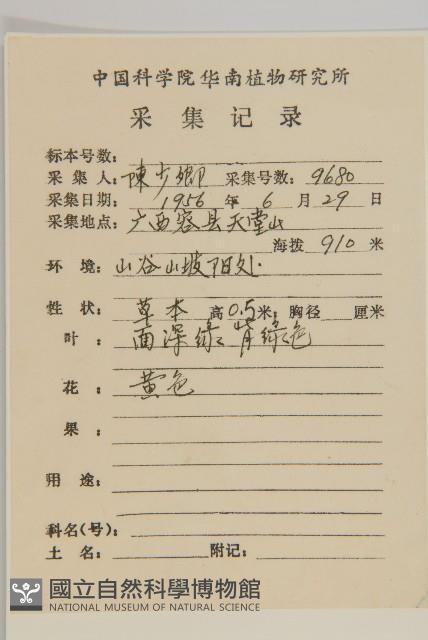 中国科学院华南植物研究所
采集记录
标本号数：
采集人：陳少卿 采集号数：9680
采集日期：1956年6月29日
采集地点：广西容县天堂山
海拨 910 米
环境：山谷山坡阳处.
性状：草本 高0.5米；胸径 厘米
叶：面深绿背绿色
花：黄色
果：
用途：
科名(号)：
土名： 附记：
國立自然科學博物館
NATIONAL MUSEUM OF NATURAL SCIENCE